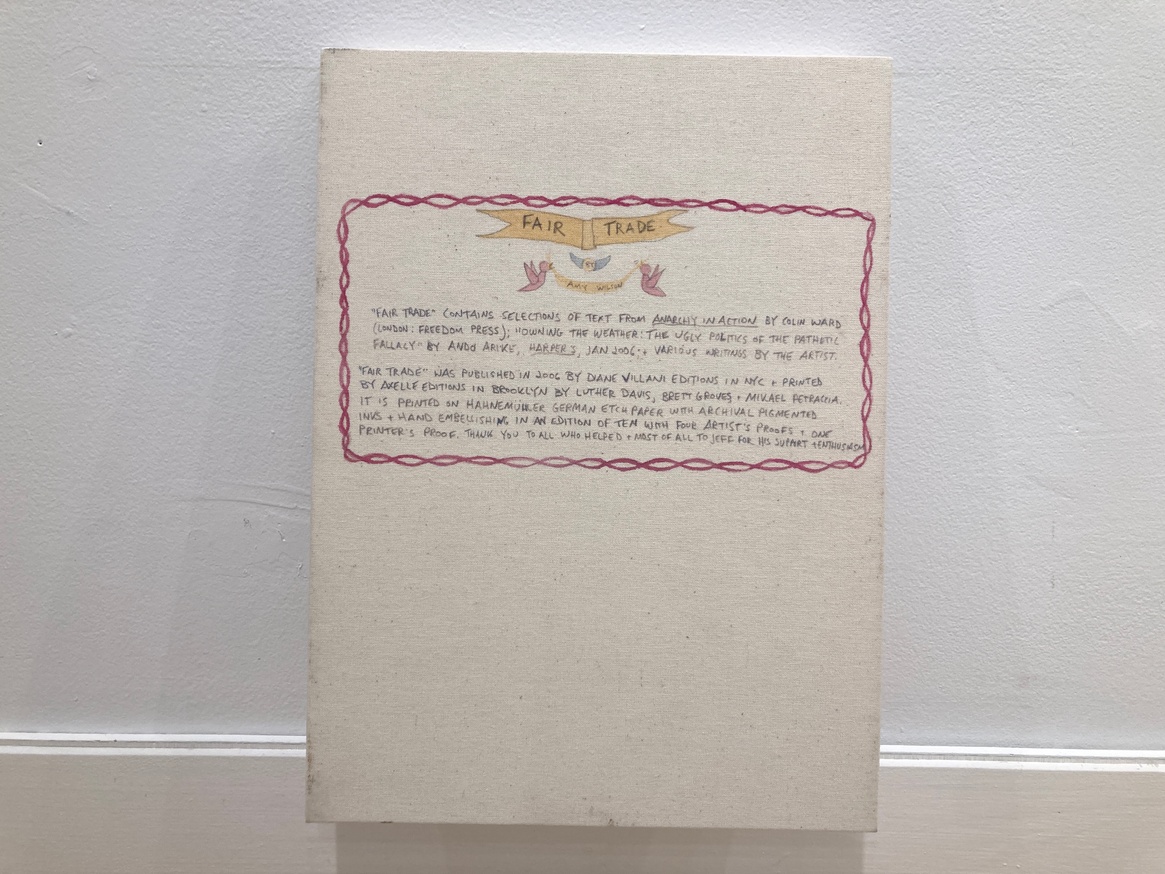 FAIR TRADE
BY
AMY WILSON
"FAIR TRADE" CONTAINS SELECTIONS OF TEXT FROM ANARCHY IN ACTION BY COLIN WARD
(LONDON: FREEDOM PRESS); "OWNING THE WEATHER: THE UGLY POLITICS OF THE PATHETIC
FALLACY" BY ANDO ARIKE, HARPER'S, JAN 2006; + VARIOUS WRITINGS BY THE ARTIST.
"FAIR TRADE" WAS PUBLISHED IN 2006 BY DIANE VILLANI EDITIONS IN NYC + PRINTED
BY AXELLE EDITIONS IN BROOKLYN BY LUTHER DAVIS, BRETT GROVES + MIKAEL PETRACCIA.
IT IS PRINTED ON HAHNEMÜHLER GERMAN ETCH PAPER WITH ARCHIVAL PIGMENTED
INKS + HAND EMBELLISHING IN AN EDITION OF TEN WITH FOUR ARTIST'S PROOFS + ONE
PRINTER'S PROOF. THANK YOU TO ALL WHO HELPED + MOST OF ALL TO JEFF FOR HIS SUPPORT + ENTHUSIASM